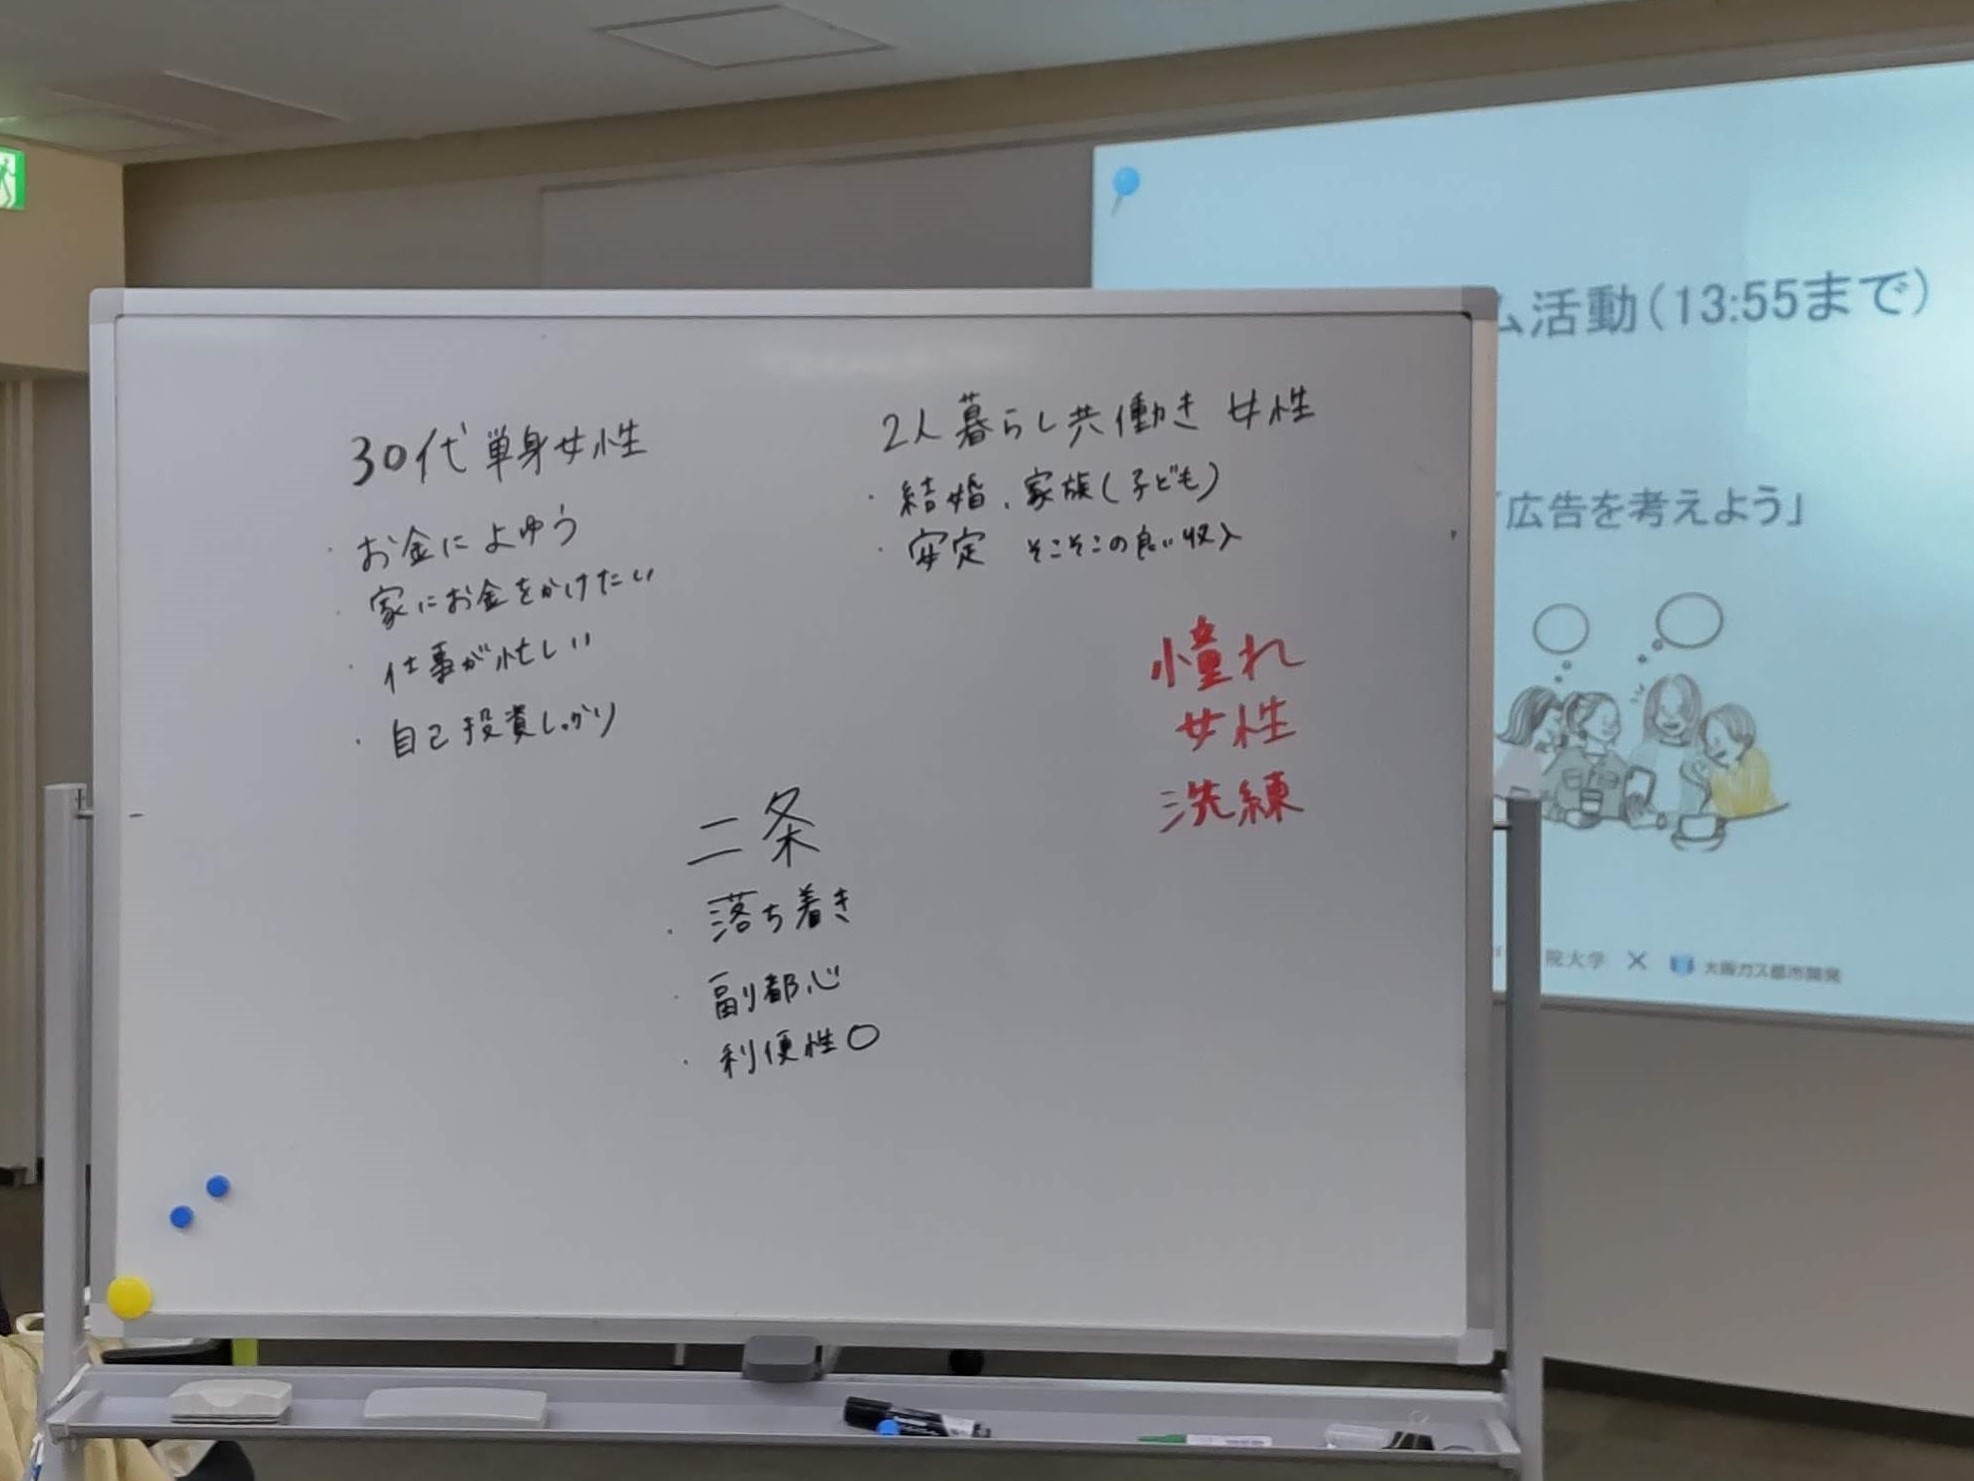 30代 単身女性
・お金によゆう
・家にお金をかけたい
・仕事が忙しい
・自己投資しっかり
2人暮らし共働き 女性
・結婚、家族(子ども)
・安定 そこそこの良い収入
憧れ
女性
洗練
二条
・落ち着き
・副都心
・利便性〇
ム活動(13:55まで)
「広告を考えよう」
院大学 × 大阪ガス都市開発